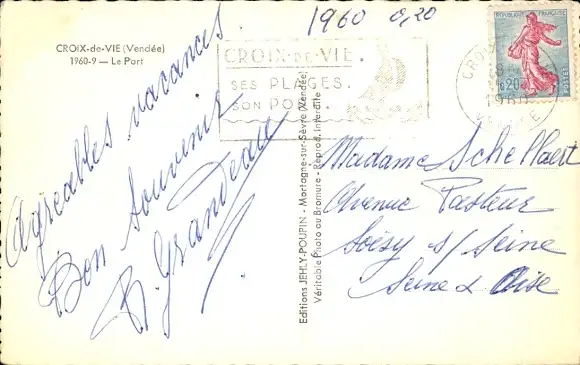 1960 0,20
CROIX-de-VIE (Vendée)
1960-9 — Le Port
CROIX-DE-VIE.
SES PLAGES.
SON PORT.
REPUBLIQUE FRANÇAISE
0,20
POSTES
CROIX
1960
VENDEE
Agréables vacances.
Bon souvenir
B. Grandeau
Editions JEHLY-POUPIN - Mortagne-sur-Sèvre (Vendée)
Véritable Photo au Bromure - Reprod. interdite
Madame Schellaert
Avenue Pasteur
Soisy s/ Seine
Seine & Oise